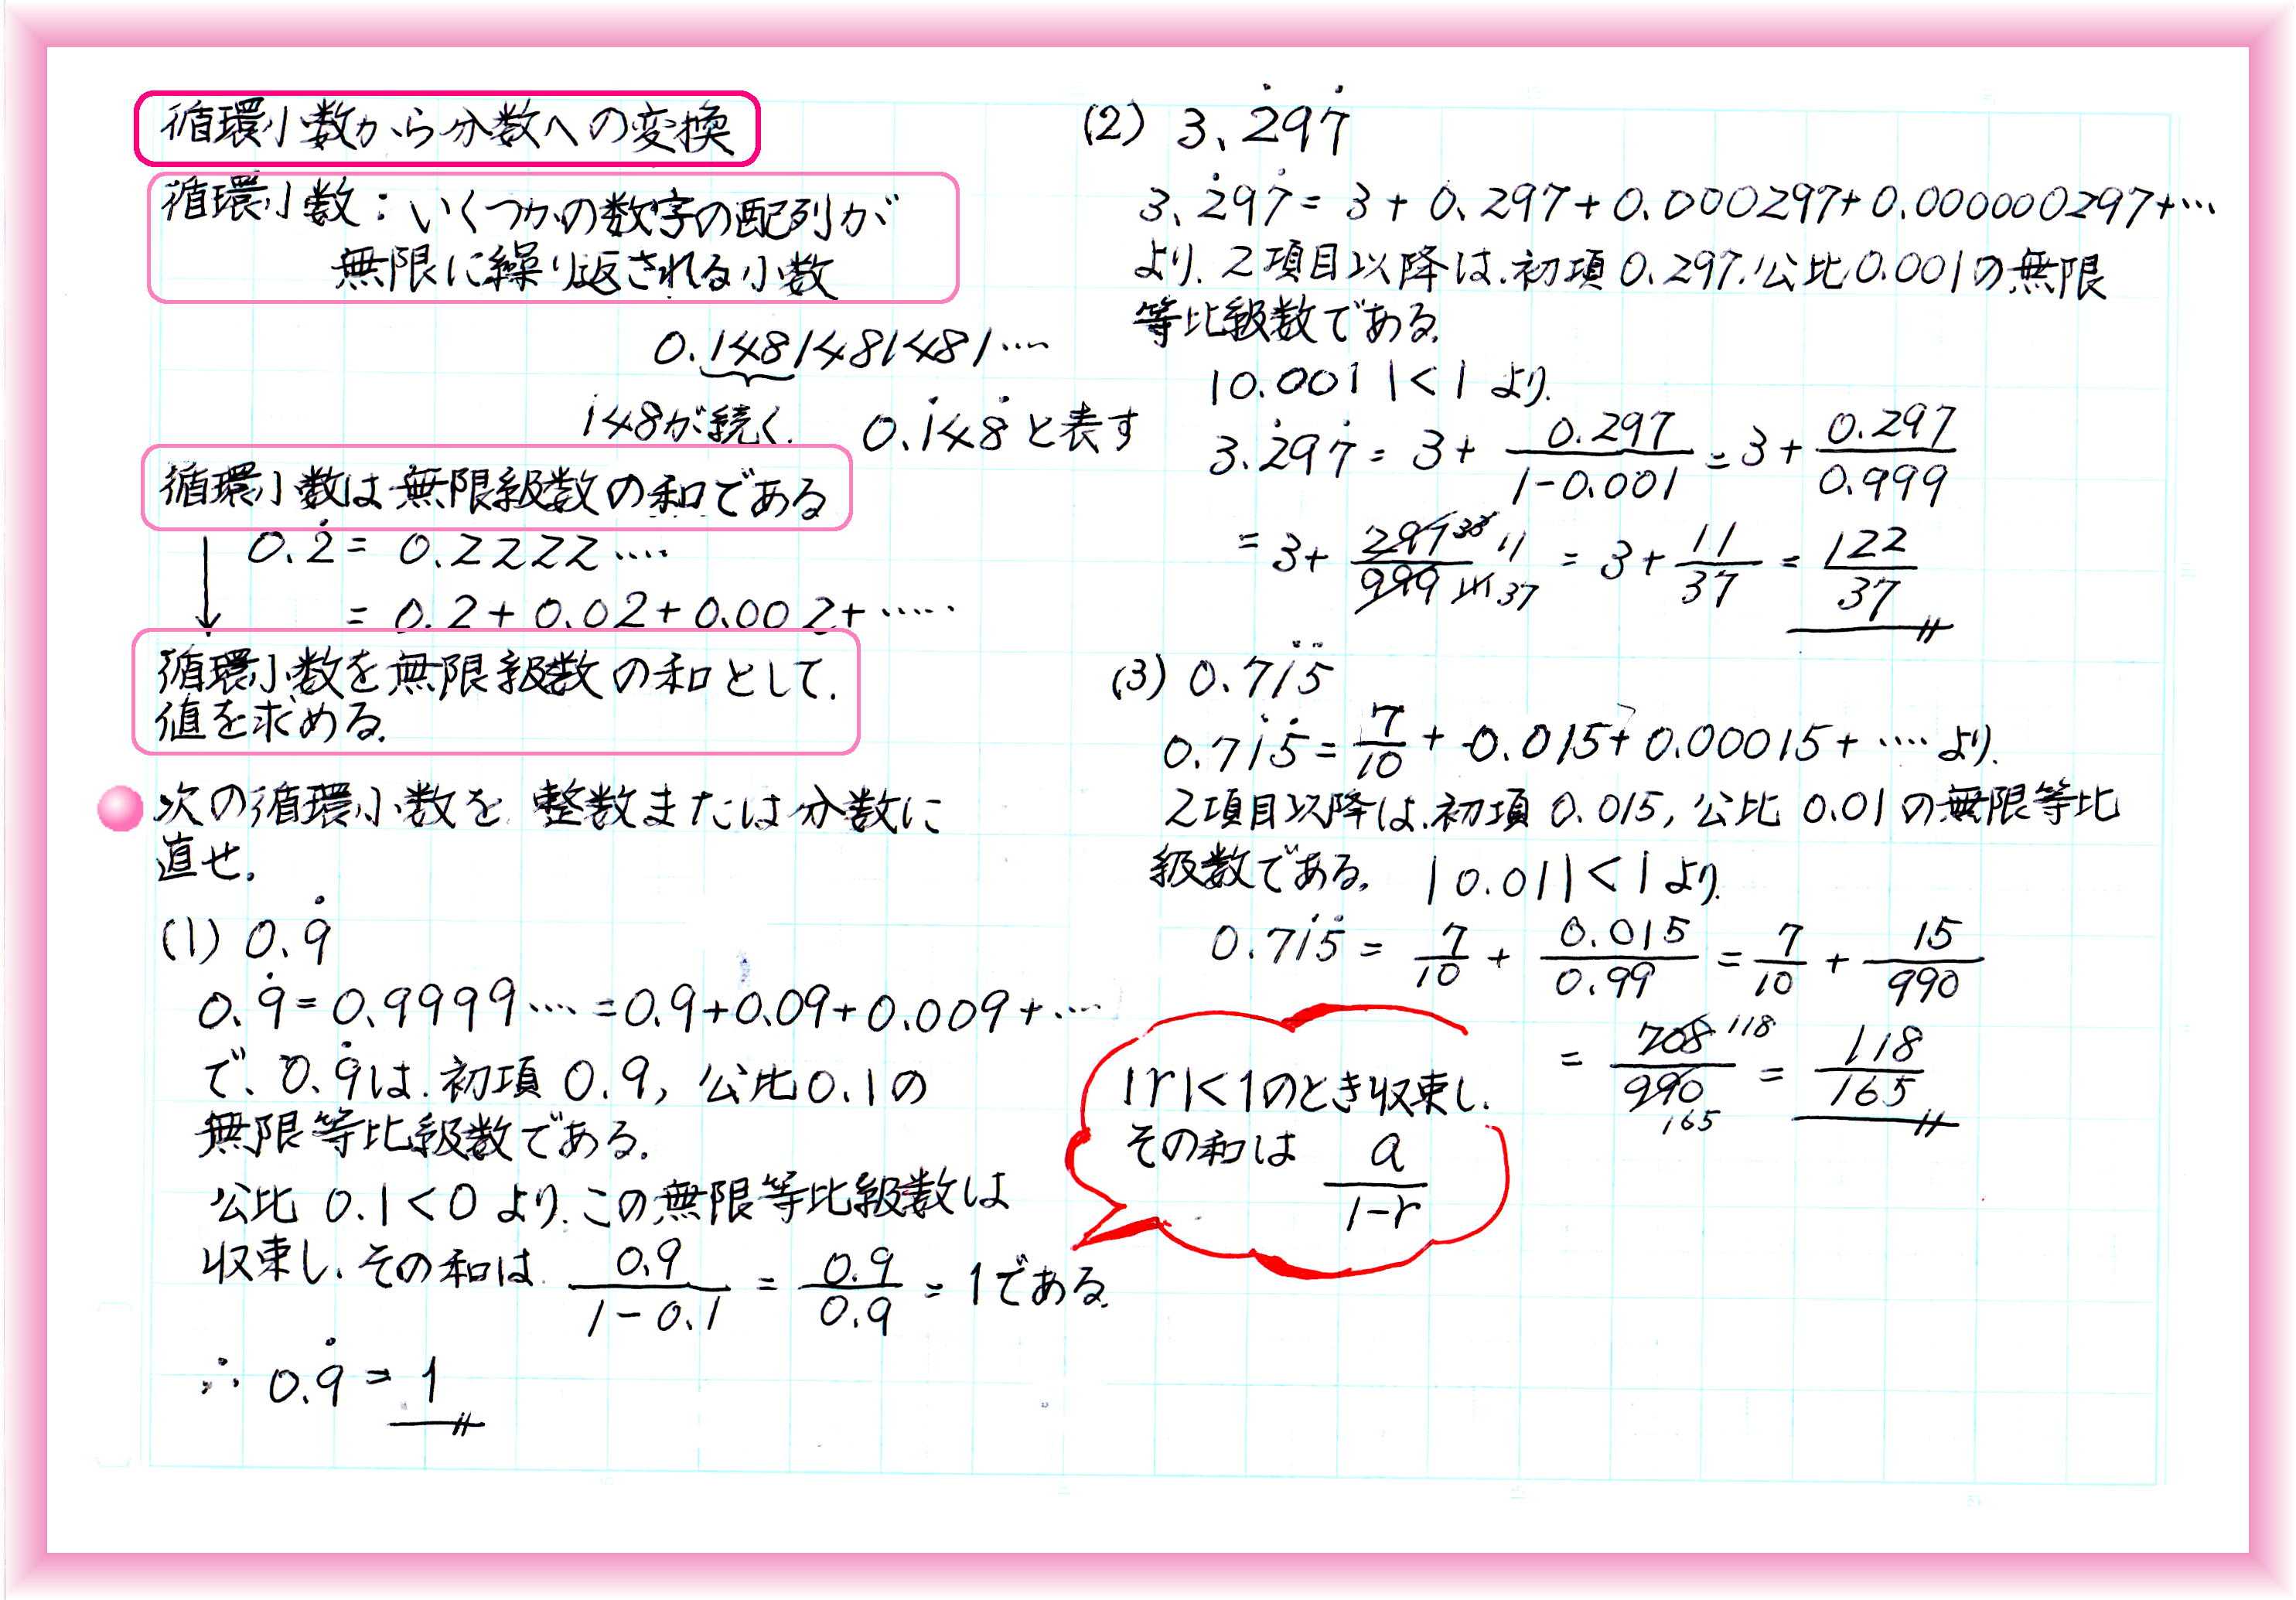 循環小数から分数への変換
循環小数：いくつかの数字の配列が
無限に繰り返される小数
0.1481481481····
148が続く. 0.1̇48̇と表す
循環小数は無限級数の和である
0.2̇ = 0.2222····
= 0.2+0.02+0.002+·····
循環小数を無限級数の和として.
値を求める.
次の循環小数を 整数または分数に
直せ.
(1) 0.9̇
0.9̇=0.9999···· =0.9+0.09+0.009+····
で、0.9̇は.初項 0.9, 公比0.1の
無限等比級数である.
公比 0.1<0 より.この無限等比級数は
収束し.その和は 0.9/(1-0.1) = 0.9/0.9 = 1である.
∴ 0.9̇ = 1
(2) 3.2̇97̇
3.2̇97̇= 3+0.297+0.000297+0.000000297+···
より.2項目以降は.初項0.297.公比0.001の無限
等比級数である.
|0.001|<1 より.
3.2̇97̇ = 3+ 0.297/(1-0.001) = 3+ 0.297/0.999
= 3+ 297/999 33 11 111 37 = 3+ 11/37 = 122/37
(3) 0.71̇5̇
0.71̇5̇= 7/10 + 0.015+0.00015+····より.
2項目以降は.初項 0.015, 公比 0.01の無限等比
級数である. |0.01|<1より.
0.71̇5̇ = 7/10 + 0.015/0.99 = 7/10 + 15/990
= 708/990 118 165 = 118/165
|r|<1のとき収束し.
その和は a/(1-r)